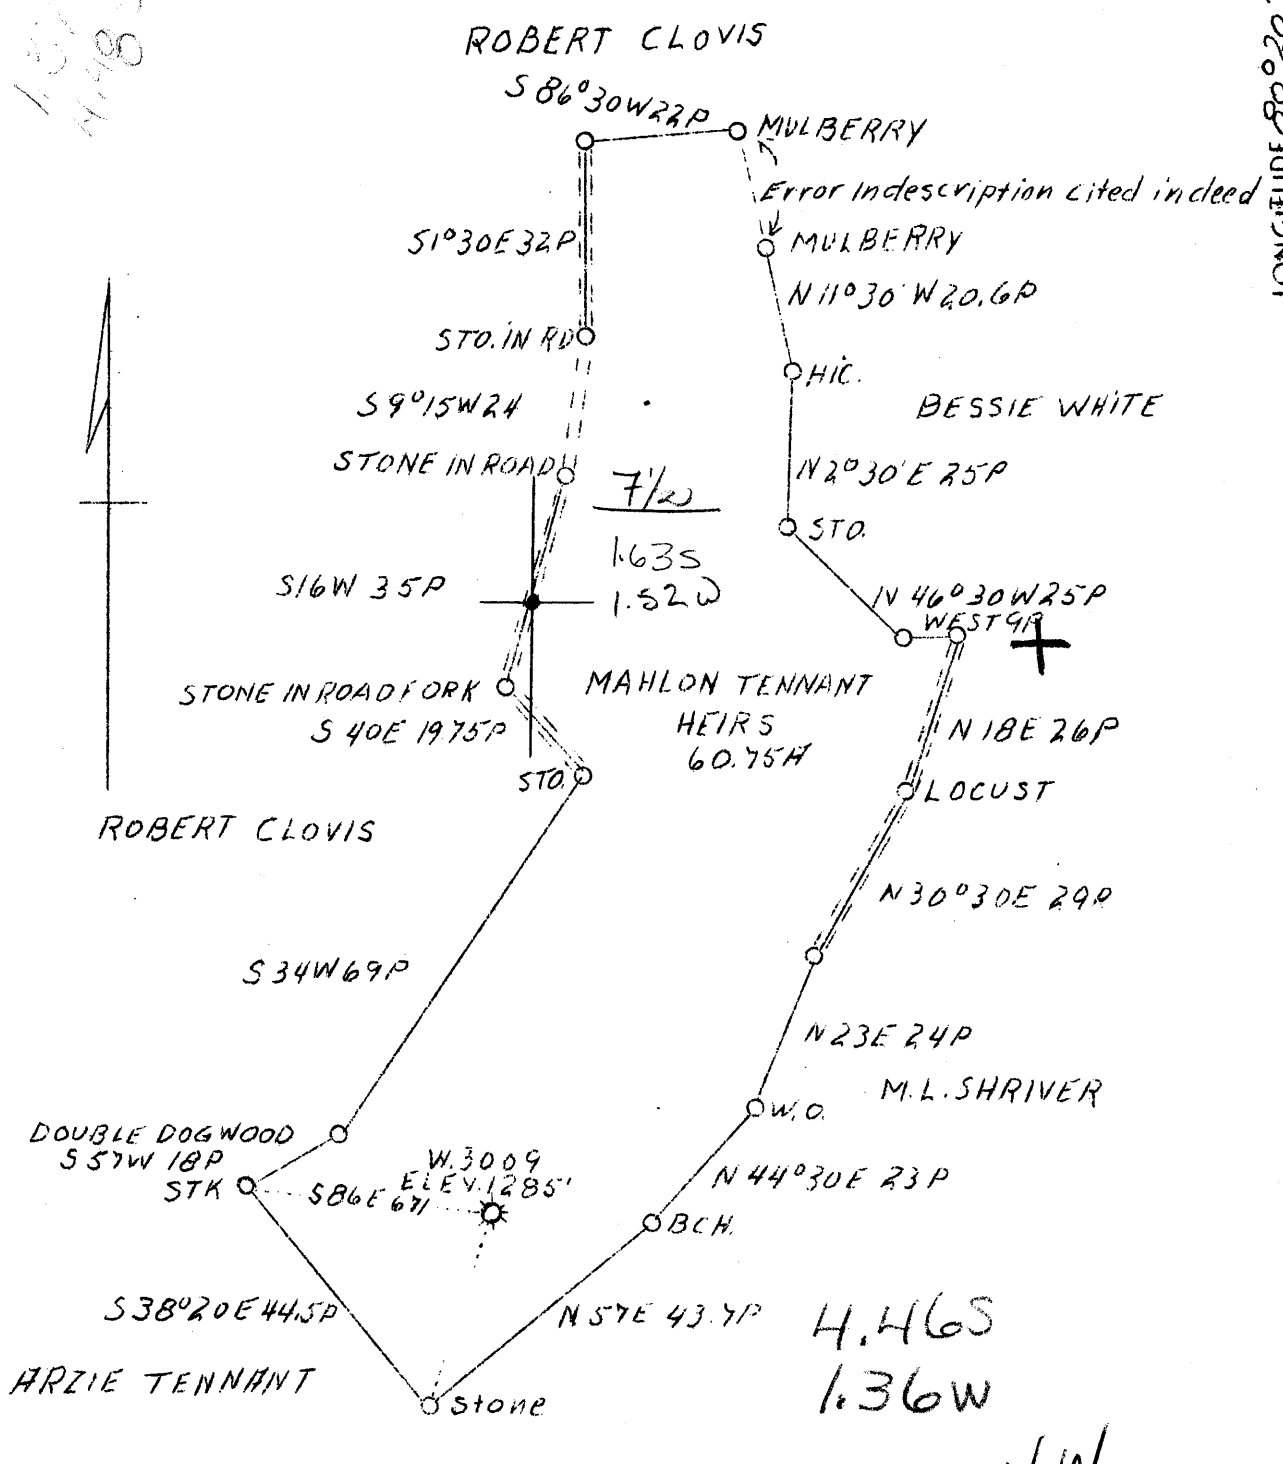 ROBERT CLOVIS
S 86°30W22P
MULBERRY
Error Indescription cited indeed
S1°30E32P
MULBERRY
N 11°30' W20.6P
STO. IN RD
HIC.
S9°15W24
BESSIE WHITE
STONE IN ROAD
N2°30'E 25P
7½
STO.
1.63S
1.52W
S16W 35P
N 46°30W25P
WEST 9P
STONE IN ROAD FORK
MAHLON TENNANT
HEIRS
60.75A
S 40E 19.75P
N 18E 26P
STO.
LOCUST
ROBERT CLOVIS
N 30°30E 29P
S34W69P
N23E 24P
M.L. SHRIVER
W.O.
DOUBLE DOGWOOD
S57W 18P
STK
W.3009
ELEV.1285'
S86E 671
N 44°30E 23P
BCH.
S38°20E44.5P
N 57E 43.7P
4.46S
1.36W
ARZIE TENNANT
Stone
LONGITUDE 80°20